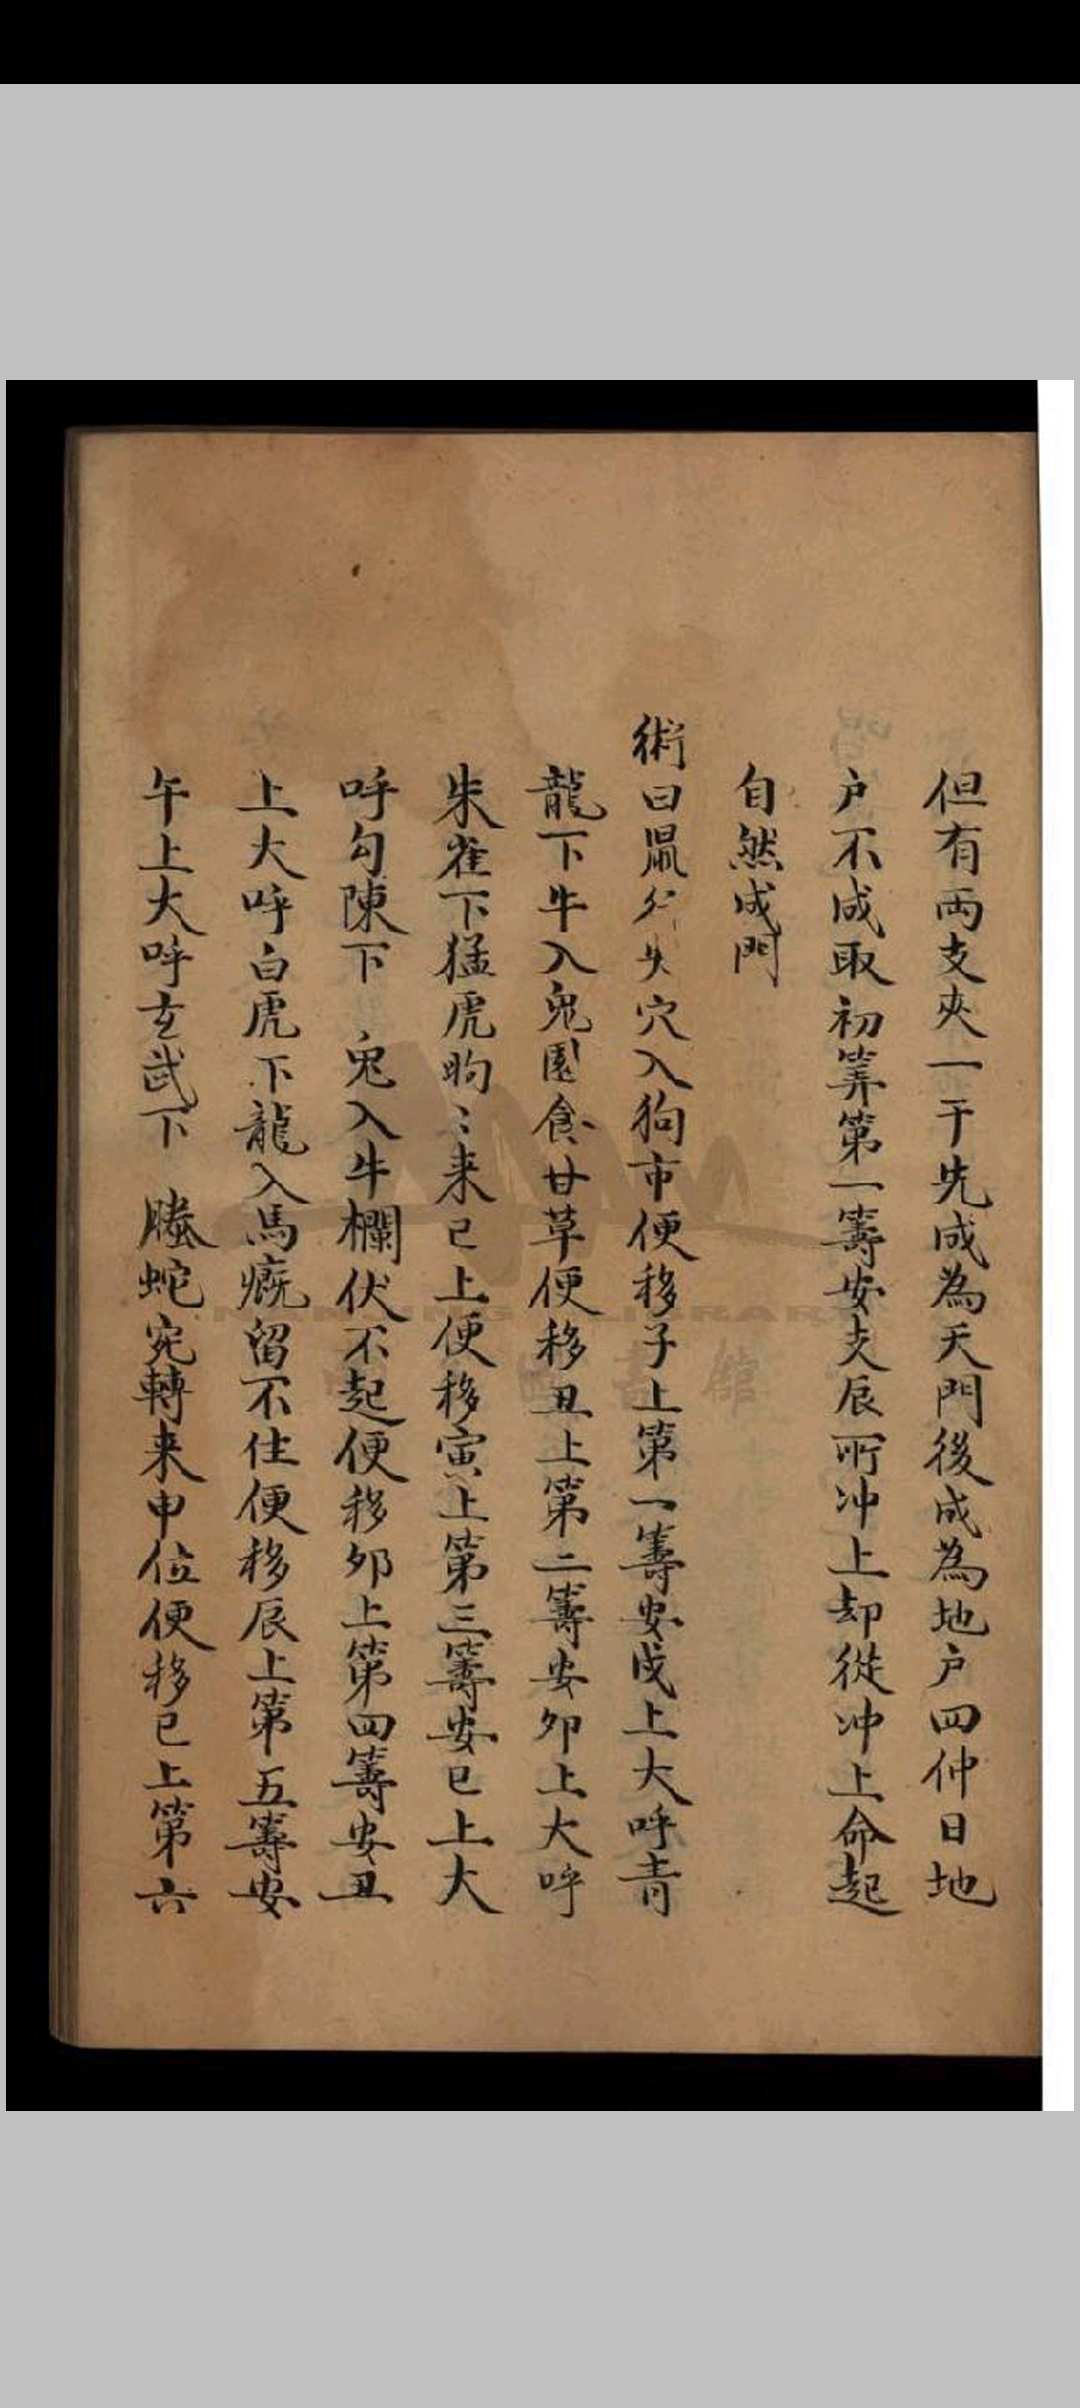 但有两支夾一干先成為天門後成為地户四仲日地
户不成取初筭第一籌安支辰所冲上却從冲上命起
自然成門
術曰鼠行失穴入狗市便移子上第一籌安戌上大呼青
龍下牛入兔園食甘草便移丑上第二籌安卯上大呼
朱雀下猛虎昫〻来巳上便移寅上第三籌安巳上大
呼勾陳下 兔入牛欄伏不起便移卯上第四籌安丑
上大呼白虎下龍入馬廐留不住便移辰上第五籌安
午上大呼玄武下 螣蛇宛轉来申位便移巳上第六